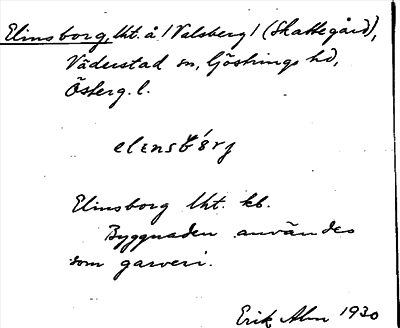 Elinsborg, lht. å /Valsberg/ (Skattegård),
Väderstad sn, Göstrings hd,
Österg. l.
elɛnsbórj
Elinsborg lht. kb.
Byggnaden användes
som garveri.
Erik Alm 1930